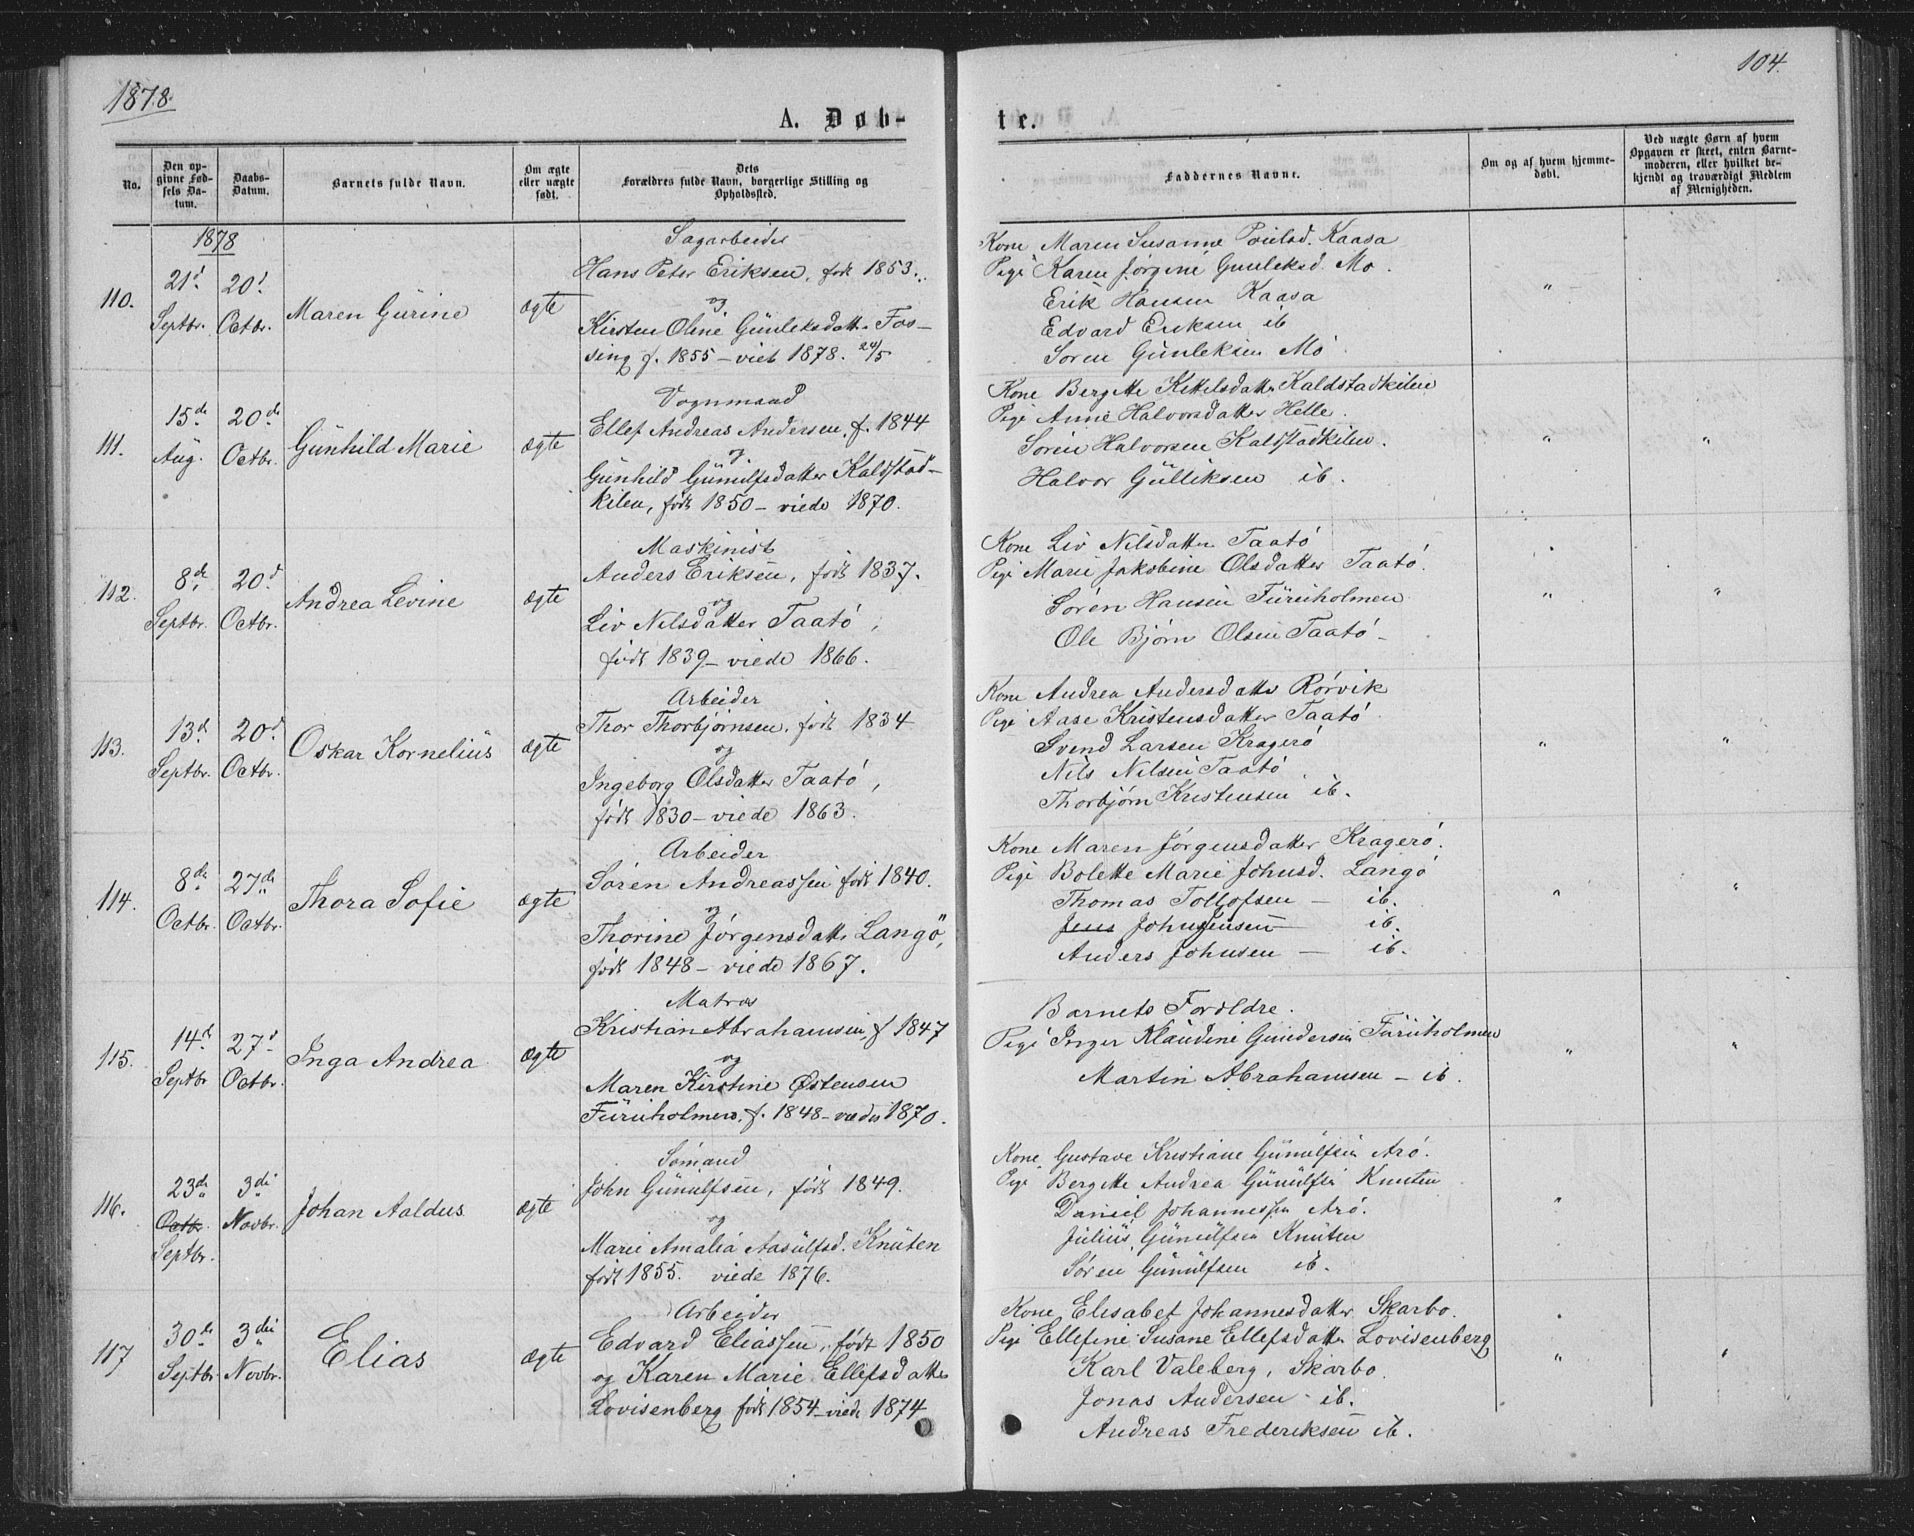 1878.
104.
A. Døb-
te.
No.
Den op-
givne Fød-
sels Da-
tum.
Daabs-
Datum.
Barnets fulde Navn.
Om ægte
eller uægte
født.
Dets
Forældres fulde Navn, borgerlige Stilling og
Opholdssted.
Faddernes Navne.
Om og af hvem hjemme-
døbt.
Ved uægte Børn af hvem
Opgaven er skeet, enten Barne-
moderen, eller hvilket be-
kjendt og troværdigt Medlem
af Menigheden.
1878
110.
21d
Septbr.
20d
Octbr.
Maren Gurine
ægte
Sagarbeider
Hans Peter Eriksen, født 1853.
og
Kirsten Oline Gunleksdatt. Fos-
sing f. 1855 – viet 1878. 24/5
Kone Maren Susanne Kaasa
Pige Karen Jørgine Gunleksd. Mo.
Erik Hansen Kaasa
Edvard Eriksen ib
Søren Gunleksen Mo
"
111.
15de
Aug.
20de
Octbr.
Gunhild Marie
ægte
Vognmand
Ellef Andreas Andersen f. 1844
og
Gunhild Gunulfsdatter Kaldstad-
kilen, født 1850 – viede 1870.
Kone Bergitte Kittelsdatter Kaldstadkilen
Pige Anne Halvorsdatter Helle.
Søren Halvorsen Kalstadkilen.
Halvor Gulliksen ib.
" "
112.
8de
Septbr.
20d
Octbr.
Andrea Levine
ægte
Maskinist
Anders Eriksen, født 1837.
og
Liv Nilsdatter Taatø,
født 1839 – viede 1866.
Kone Liv Nilsdatter Taatø
Pige Marie Jakobine Olsdatter Taatø.
Søren Hansen Furuholmen
Ole Bjørn Olsen Taatø –
" "
113.
13d
Septbr.
20d
Octbr.
Oskar Kornelius
ægte
Arbeider
Thor Thorbjørnsen, født 1834
og
Ingeborg Olsdatter Taatø,
født 1830 – viede 1863.
Kone Andrea Andersdatter Rørvik
Pige Aase Kristensdatter Taatø
Svend Larsen Kragerø
Nils Nilsen Taatø
Thorbjørn Kristensen ib.
" "
114.
8de
Octbr.
27de
Octbr.
Thora Sofie
ægte
Arbeider
Søren Andreassen født 1840.
og
Thorine Jørgensdatt. Langø,
født 1848 – viede 1867.
Kone Maren Jørgensdatter Kragerø.
Pige Bolette Marie Johnsd. Langø
Thomas Tollofsen – ib.
Jens ib.
Anders Johnsen – ib.
" "
115.
14d
Septbr
27d
Octbr.
Inga Andrea
ægte
Matros
Kristian Abrahamsen, f 1847
og
Maren Kirstine Østensen
Furuholmen, f. 1848 – viede 1870.
Barnets Forældre.
Pige Inger Klaudine Gundersen Furuholmen
Martin Abrahamsen – ib.
" "
116.
23de
Octb.
Septbr.
3die
Novbr.
Johan Aaldus
ægte
Sømand
John Gunulfsen, født 1849.
og
Marie Amalia Aasulfsd. Knuten
født 1855. viede 1876.
Kone Gustave Kristiane Gunulfsen Arø.
Pige Bergitte Andrea Gunulfsn Knuten
Daniel Johannessen Arø.
Julius Gunulfsen Knuten
Søren Gunulfsen ib.
"
117
30de
Septbr
3die
Novbr.
Elias
ægte
Arbeider
Edvard Eliassen, født 1850
og Karen Marie Ellefsdatter
Lovisenberg født 1854 – viede 1874
Kone Elisabet Johannesdatter Skarbo.
Pige Ellefine Susane Ellefsdatter Lovisenberg
Karl Valeberg, Skarbo.
Jonas Andersen – ib.
Andreas Frederiksen ib.
" "